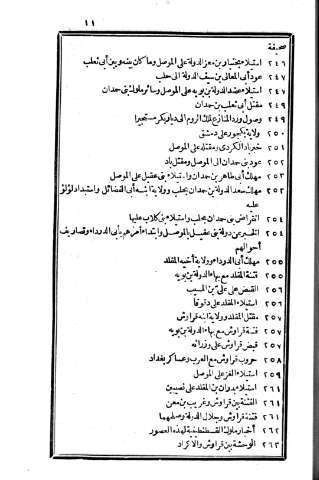 ١١
صحيفة
٢٤٦ استيلاء بختيار بن معز الدولة على الموصل وما كان بينه وبين أبى تغلب
٢٤٧ عود أبى المعالى بن سيف الدولة الى حلب
٢٤٧ استيلاء عضد الدولة بن بويه على الموصل وسائر ملوك بنى حمدان
٢٤٩ مقتل أبى تغلب بن حمدان
٢٤٩ وصول ورد المنازع لملك الروم الى ديار بكر مستجيرا
٢٥٠ ولاية بكجور على دمشق
٢٥١ خبر باد الكردى ومقتله على الموصل
٢٥٢ عود بنى حمدان الى الموصل ومقتل باد
٢٥٣ مهلك أبى طاهر بن حمدان واستيلاء بنى عقيل على الموصل
٢٥٣ مهلك سعد الدولة بن حمدان بحلب وولاية ابنه أبى الفضائل واستبداد لؤلؤ
عليه
٢٥٤ انقراض بنى حمدان بحلب واستيلاء بنى كلاب عليها
٢٥٤ الخبر عن دولة بنى عقيل بالموصل وابتداء أمرهم بأبى الدرداء وتصاريف
أحوالهم
٢٥٥ مهلك أبى الدرداء وولاية أخيه المقلد
٢٥٥ فتنة المقلد مع بهاء الدولة بن بويه
٢٥٦ القبض على على بن المسيب
٢٥٦ استيلاء المقلد على دقوقا
٢٥٧ مقتل المقلد وولاية ابنه قرواش
٢٥٧ فتنة قرواش مع بهاء الدولة بن بويه
٢٥٧ قبض قرواش على وزرائه
٢٥٨ حروب قرواش مع العرب وعساكر بغداد
٢٥٩ استيلاء الغز على الموصل
٢٦١ استيلاء بدران بن المقلد على نصيبين
٢٦١ الفتنة بين قرواش وغريب بن معن
٢٦١ فتنة قرواش وجلال الدولة وصلحهما
٢٦٢ أخبار ملوك القسطنطينية لهذه العصور
٢٦٣ الوحشة بين قرواش والاكراد